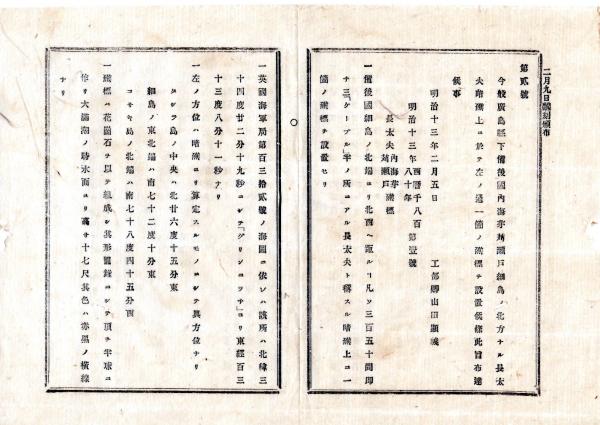 二月九日輪廓頒布
第貳號
今般廣島縣下備後國內海布刈瀨戶細島ノ北方ナル長太
夫暗礁上ニ於テ左ノ通一箇ノ礁標ヲ設置候條此旨布達
候事
明治十三年二月五日 工部卿山田顯義
明治十三年 西曆千八百八十年 第壹號
內海布刈瀨戶 長太夫礁標
一備後國細島ノ北端ヨリ北西ヘ距ルコ凡ソ三百五十間即
チ三「ケーブル」半ノ所ニアル長太夫ト稱スル暗礁上ニ一
箇ノ礁標ヲ設置セリ
一英國海軍局第百三拾貳號ノ海圖ニ依レハ該所ハ北緯三
十四度廿二分十九秒ニシテ「グリンニツチ」ヨリ東經百三
十三度八分十一秒ナリ
一左ノ方位ハ暗礁ヨリ算定スルモノニシテ眞方位ナリ
ノ中央ハ北廿六度十五分東
細島ノ東北端ハ南七十二度十分東
島ノ北端ハ南七十八度四十五分西
一礁標ハ花崗石ヲ以テ組成シ其形圓錐ニシテ頂ヲ半球ニ
作リ大滿潮ノ時水面ヨリ高サ十七尺其色ハ赤黑ノ橫線
ナリ